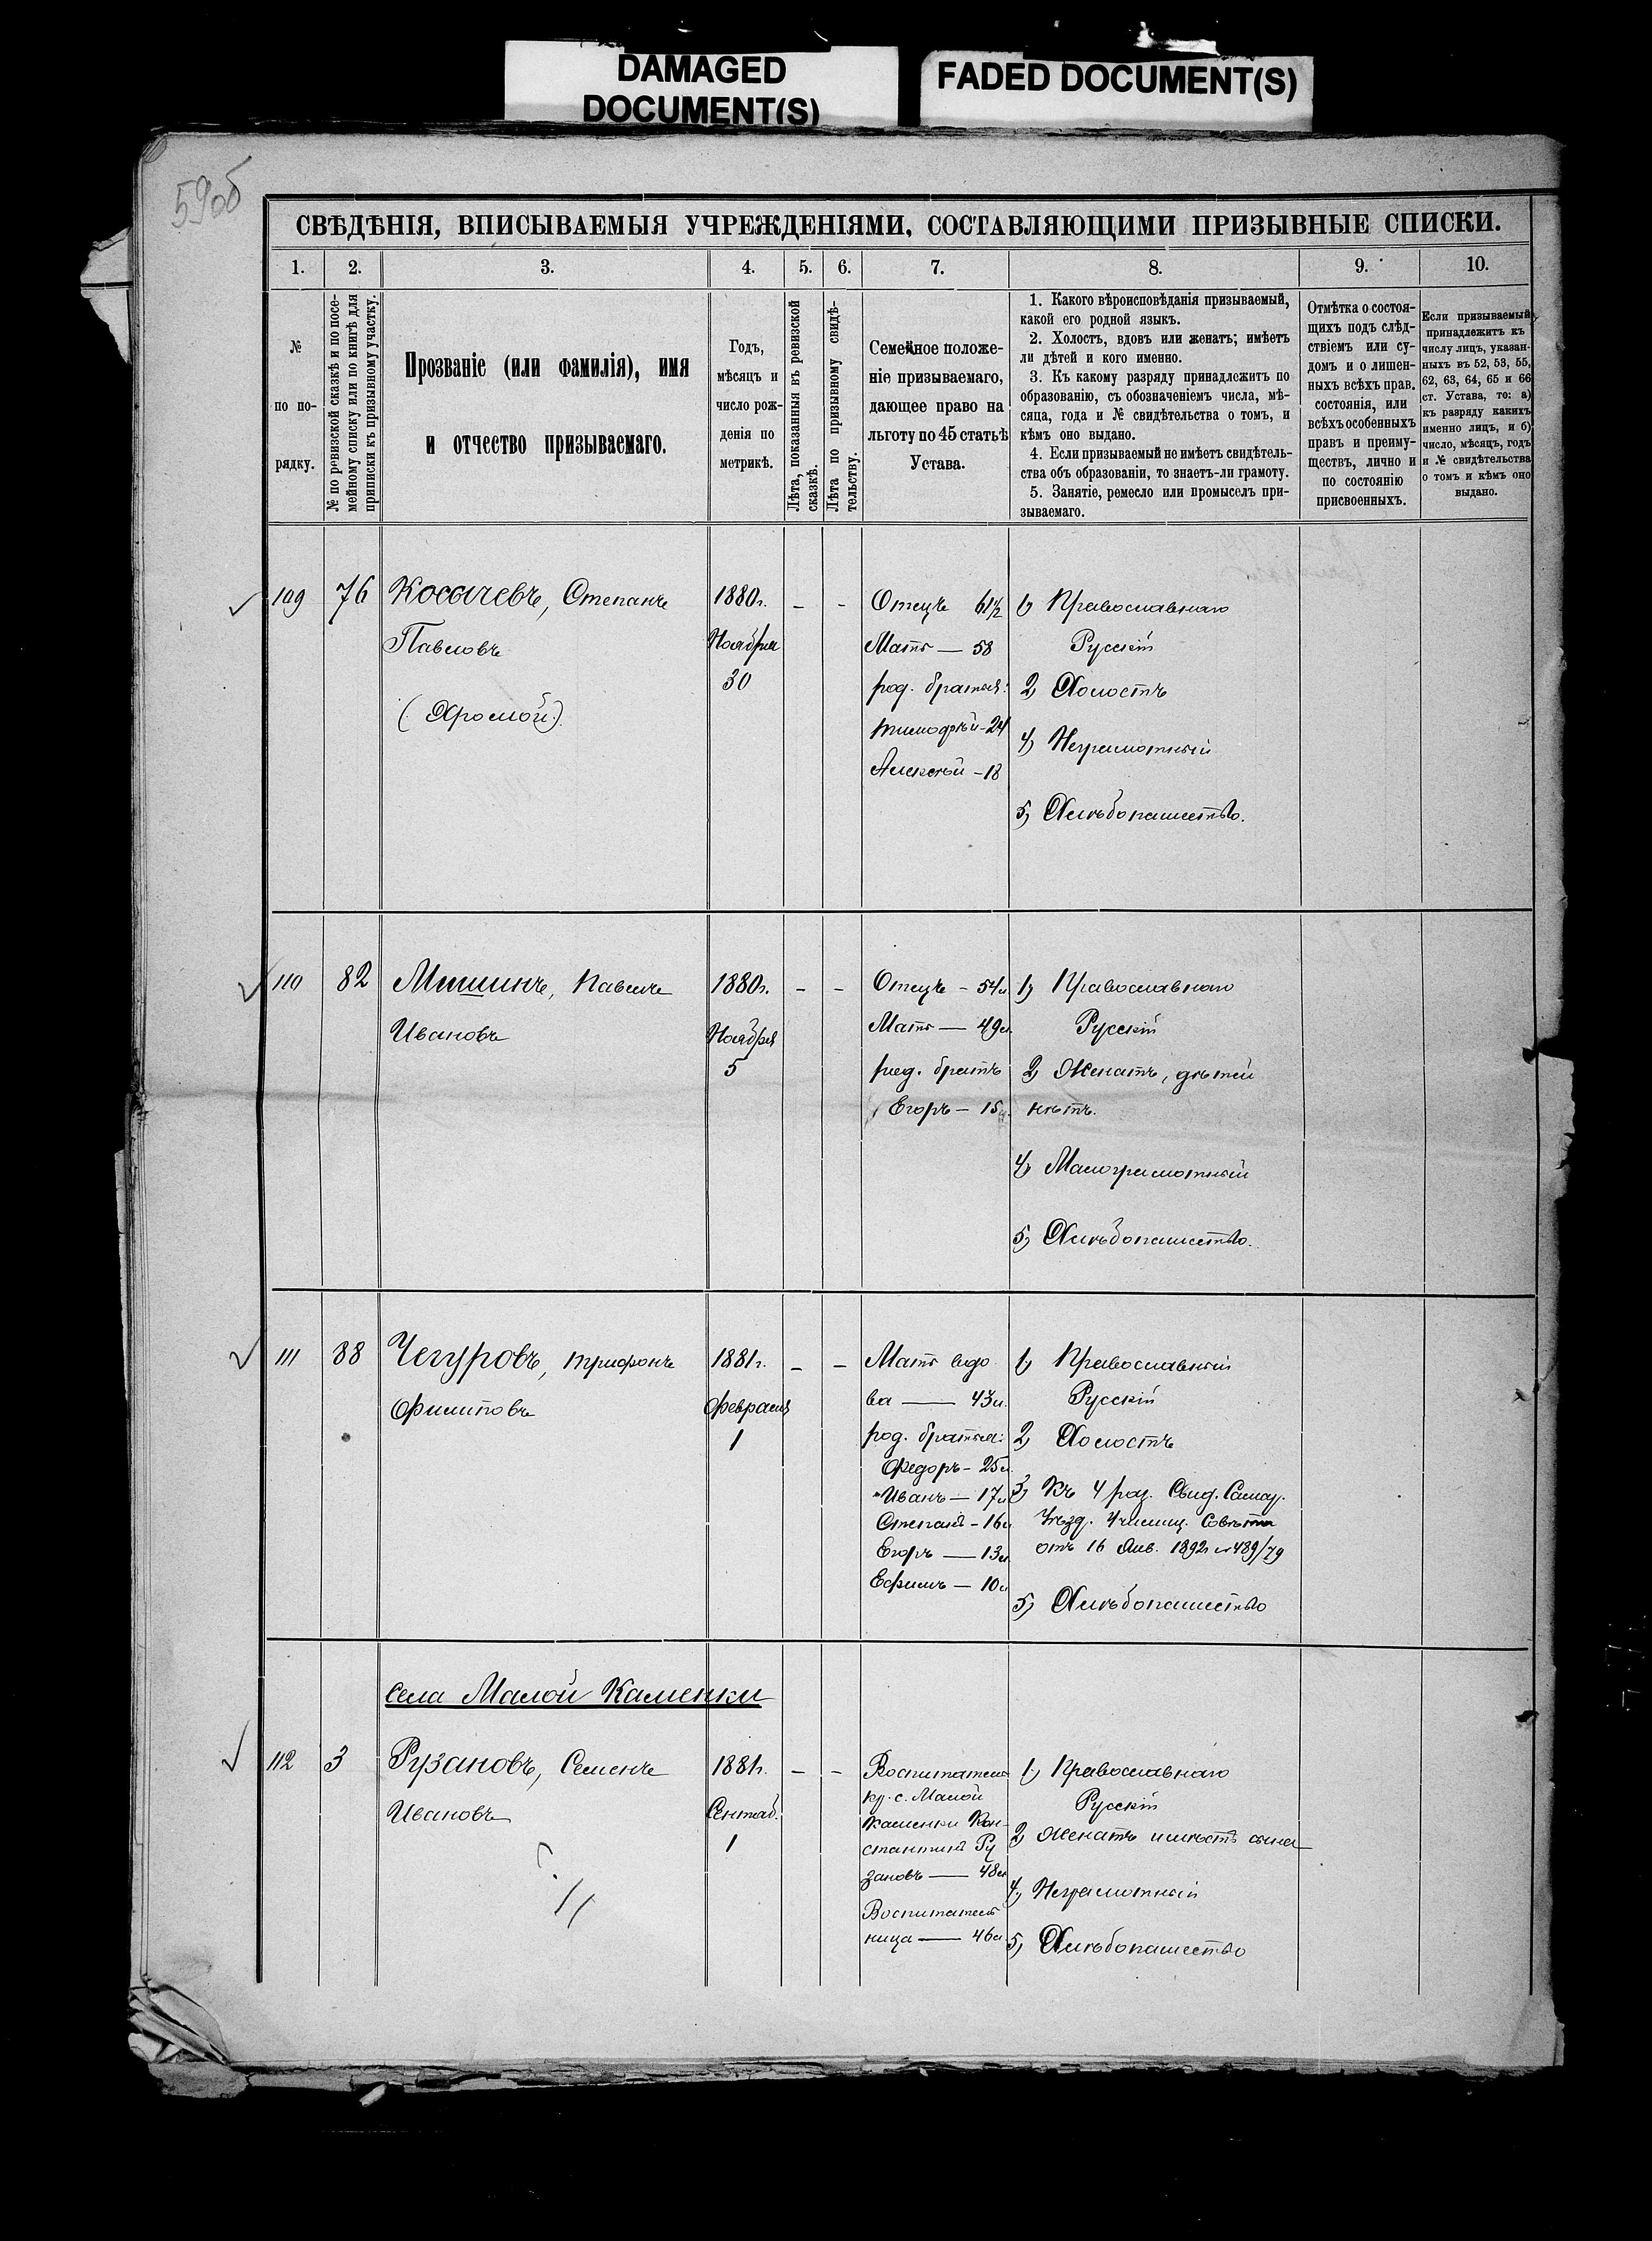 DAMAGED
DOCUMENT(S)
FADED DOCUMENT(S)
59об
СВѢДѢНІЯ, ВПИСЫВАЕМЫЯ УЧРЕЖДЕНІЯМИ, СОСТАВЛЯЮЩИМИ ПРИЗЫВНЫЕ СПИСКИ.
1. 2. 3. 4. 5. 6. 7. 8. 9. 10.
№
по по-
рядку.
№ по ревизской сказкѣ и по посе-
мейному списку или по книгѣ для
приписки къ призывному участку.
Прозваніе (или фамилія), имя
и отчество призываемаго.
Годъ,
мѣсяцъ и
число рож-
денія по
метрикѣ.
Лѣта, показанныя въ ревизской
сказкѣ.
Лѣта по призывному свидѣ-
тельству.
Семейное положе-
ніе призываемаго,
дающее право на
льготу по 45 статьѣ
Устава.
1. Какого вѣроисповѣданія призываемый,
какой его родной языкъ.
2. Холостъ, вдовъ или женатъ; имѣетъ
ли дѣтей и кого именно.
3. Къ какому разряду принадлежитъ по
образованію, съ обозначеніемъ числа, мѣ-
сяца, года и № свидѣтельства о томъ, и
кѣмъ оно выдано.
4. Если призываемый не имѣетъ свидѣтель-
ства объ образованіи, то знаетъ-ли грамоту.
5. Занятіе, ремесло или промыселъ при-
зываемаго.
Отмѣтка о состоя-
щихъ подъ слѣд-
ствіемъ или су-
домъ и о лишен-
ныхъ всѣхъ прав.
состоянія, или
всѣхъ особенныхъ
правъ и преиму-
ществъ, лично и
по состоянію
присвоенныхъ.
Если призываемый
принадлежитъ къ
числу лицъ, указан-
ныхъ въ 52, 53, 55,
62, 63, 64, 65 и 66
ст. Устава, то: а)
къ разряду какихъ
именно лицъ, и б)
число, мѣсяцъ, годъ
и № свидѣтельства
о томъ и кѣмъ оно
выдано.
109
76
Косачевъ, Степанъ
Павловъ
(Хромой).
1880г.
Ноября
30
–
–
Отецъ 61½
Мать — 58
род. братья:
Тимофѣй - 24
Алексѣй - 18
1) Православнаго
Русскій
2) Холостъ
4) Неграмотный
5) Хлѣбопашество.
110
82
Мишинъ, Павелъ
Ивановъ
1880г.
Ноября
5
–
–
Отецъ - 54л
Мать — 49л.
род. братъ
Егоръ — 15л.
1) Православнаго
Русскій
2) Женатъ, дѣтей
нѣтъ.
4) Малограмотный
5) Хлѣбопашество.
111
88
Чегуровъ, Трифонъ
Филиповъ
1881г.
Февраля
1
–
–
Мать вдо
ва — 43л.
род. братья:
Федоръ - 25л.
Иванъ — 17л
Степанъ - 16л
Егоръ — 13л
Ефимъ — 10л
1) Православный
Русскій
2) Холостъ
3) Къ 4 раз. Свид. Самар.
Уѣзд. Училищ. Совѣта
отъ 16 Янв. 1892г № 489/79
5) Хлѣбопашество
Села Малой Каменки
112
3
Рузановъ, Семенъ
Ивановъ
1881г.
Сентяб.
1
–
–
Воспитатель
кр. с. Малой
Каменки Кон-
стантинъ Ру
зановъ — 48л
Воспитатель
ница — 46л.
1) Православнаго
Русскій
2) Женатъ имѣетъ сына
4) Неграмотный
5) Хлѣбопашество